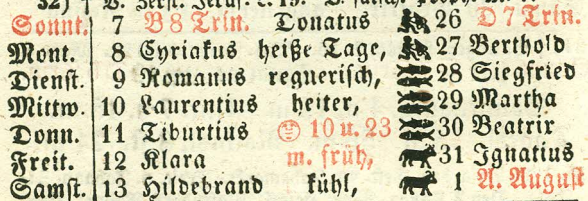 Sonnt. 7 B 8 Trin. Donatus 26 D 7 Trin.
Mont. 8 Cyriakus heiße Tage, 27 Berthold
Dienst. 9 Romanus regnerisch, 28 Siegfried
Mittw. 10 Laurentius heiter, 29 Martha
Donn. 11 Tiburtius 10 u. 23 30 Beatrix
Freit. 12 Klara m. früh, 31 Ignatius
Samst. 13 Hildebrand kühl, 1 A. August